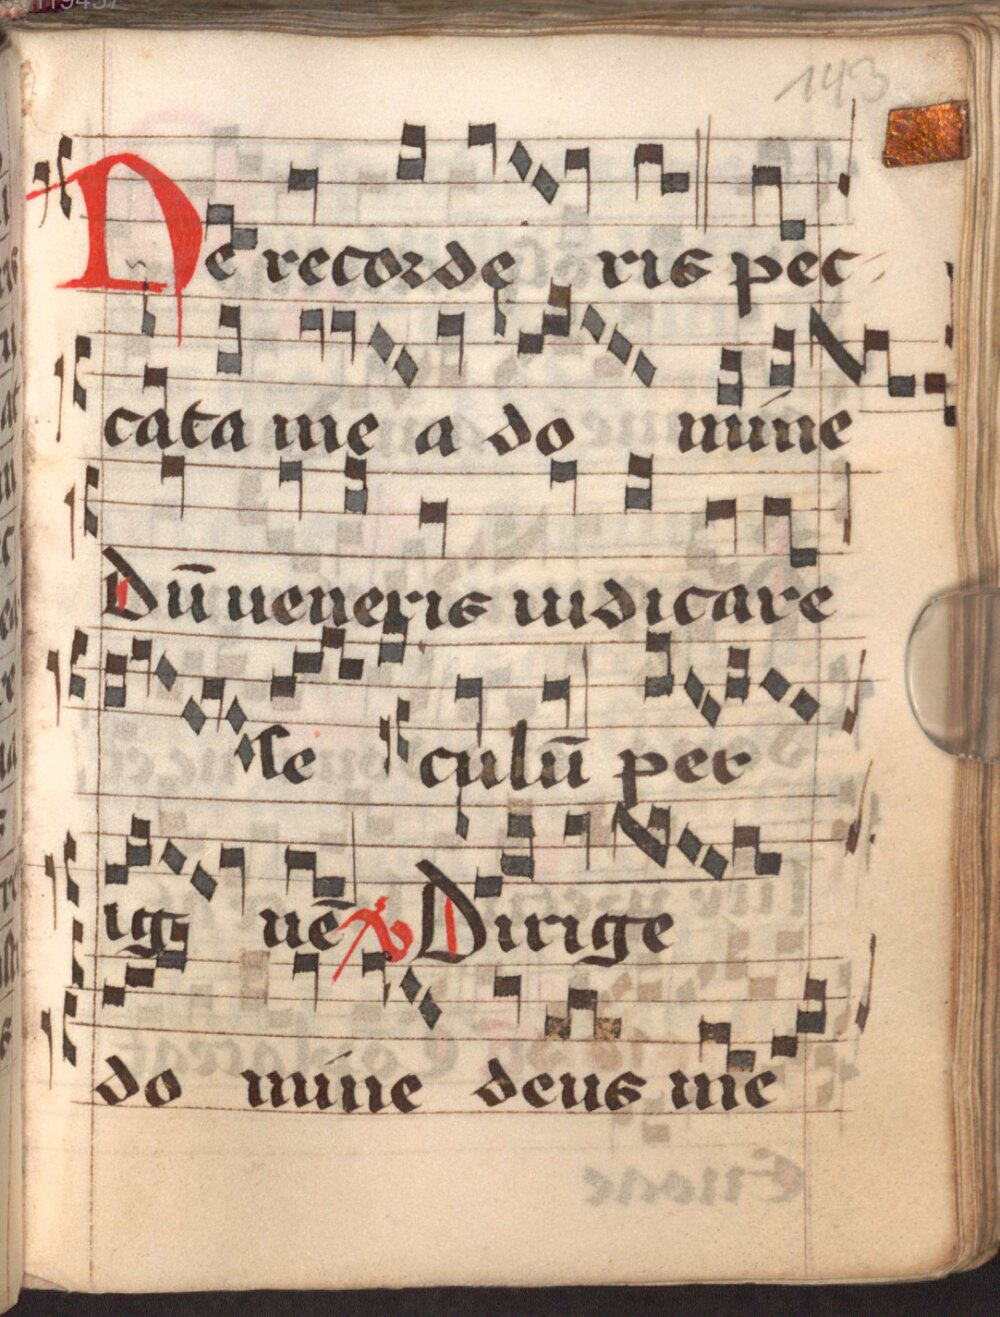 143
De recorderis pec-
cata mea do mine
Dū ueneris iudicare
se culū per
ig uē Dirige
do mine deus me